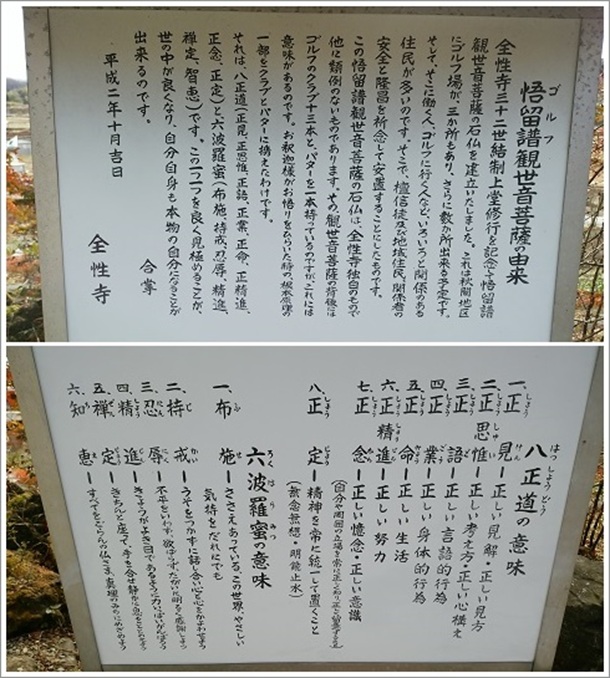 ゴルフ
悟留譜観世音菩薩の由来
全性寺三十二世結制上堂修行を記念で悟留譜
観世音菩薩の石仏を建立いたしました。これは秋間地区
にゴルフ場が、三か所もあり、さらに数か所出来る予定です。
そして、そこに働く人、ゴルフに行く人など、いろいろと関係のある
住民が多いのです。そこで、檀信徒及び地域住民、関係者の
安全と隆昌を祈念して安置することにしたものです。
この悟留譜観世音菩薩の石仏は、全性寺独自のもので
他に類例のないものであります。その観世音菩薩の背後には
ゴルフのクラブ十三本と、パターを一本持っているのですが、これには
意味があるのです。お釈迦様がお悟りをひらいた時の、根本原理の
一部をクラブとパターに携えたわけです。
それは、八正道(正見、正思惟、正語、正業、正命、正精進、
正念、正定)と六波羅蜜(布施、持戒、忍辱、精進、
禅定、智恵)です。この一つ一つを良く見極めることが、
世の中が良くなり、自分自身も本物の自分になることが
出来るのです。
合掌
平成二年十月吉日
全性寺
八正道の意味
はっしょうどう
一、正見ー正しい見解・正しい見方
二、正思惟ー正しい考え方・正しい心構え
三、正語ー正しい言語的行為
四、正業ー正しい身体的行為
五、正命ー正しい生活
六、正精進ー正しい努力
七、正念ー正しい憶念・正しい意識
(自分や周囲の立場を常に正しく知り、正しく留意する)
八、正定ー精神を常に統一して置くこと
(無念無想・明鏡止水)
六波羅蜜の意味
ろくはらみつ
一、布施ーささえあっている、この世界、やさしい
気持をだれにでも
二、持戒ーうそをつかずに話し合い、心と心をかよわせよう
三、忍辱ー不平をいわず、欲ばらず、たがいに明るく感謝しよう
四、精進ーきょうがよき日であるように、力いっぱいがんばろう
五、禅定ーきちんと座って、手を合せ、静かに
六、知恵ーすべてをてららん仏さま、真理のみちにめざめよう